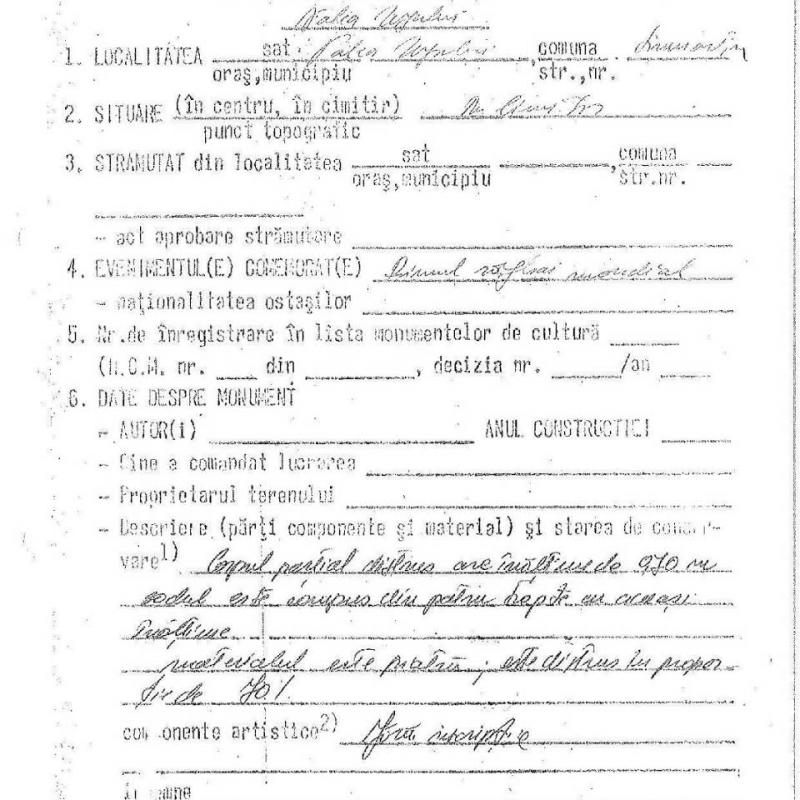 Valea Uzului
1. LOCALITATEA sat Valea Uzului, comuna
oraş,municipiu str.,nr.
2. SITUARE (în centru, în cimitir) În Cimitir
punct topografic
3. STRAMUTAT din localitatea sat , comuna
oraş,municipiu str.nr.
- act aprobare strămutare
4. EVENIMENTUL(E) COMEMORAT(E) Primul război mondial
- naţionalitatea ostaşilor
5. Nr.de înregistrare în lista monumentelor de cultură
(H.C.M. nr. din , decizia nr. /an
6. DATE DESPRE MONUMENT
- AUTOR(i) ANUL CONSTRUCTIEI
- Cine a comandat lucrarea
- Proprietarul terenului
- Descriere (părţi componente şi material) şi starea de conser-
vare1) Corpul parţial distrus are înălţime de 0,70 m
soclul este compus din patru trepte cu aceeaşi
înălţime
materialul este piatră; este distrus în propor-
ţie de 70%
componente artistice2) fără inscripţie